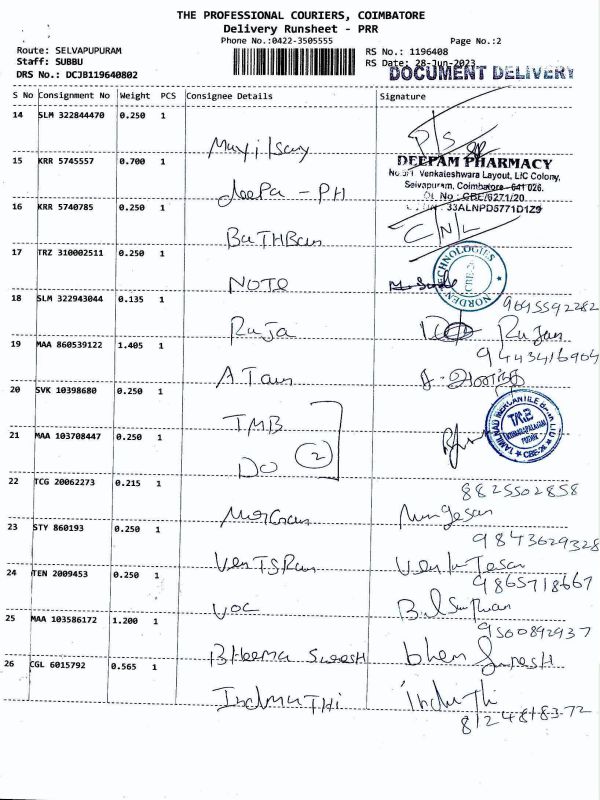 THE PROFESSIONAL COURIERS, COIMBATORE
Delivery Runsheet - PRR
Phone No.:0422-3505555 Page No.:2
Route: SELVAPUPURAM RS No.: 1196408
Staff: SUBBU RS Date: 28-Jun-2023
DRS No.: DCJB119640802 DOCUMENT DELIVERY
S No Consignment No Weight PCS Consignee Details Signature
14 SLM 322844470 0.250 1
P/S
15 KRR 5745557 0.700 1 DEEPAM PHARMACY
Venkaleshwara Layout, LIC Colony,
Selvapuram, Coimbatore - 641 026.
Deepa - PH
16 KRR 5740785 0.250 1
33ALNPD5771D1Z9
C/N/L
17 TRZ 310002511 0.250 1 NORDEN TECHNOLOGIES
NOTO
18 SLM 322943044 0.135 1
Raja
19 MAA 860539122 1.405 1 9443416904
20 SVK 10398680 0.250 1
T.M.B TAMILNAD MERCANTILE BANK LTD
TMB
21 MAA 103708447 0.250 1
DO 2
22 TCG 20062273 0.215 1 8825502858
Murgesan
23 STY 860193 0.250 1 9843629328
24 TEN 2009453 0.250 1 9865718667
VOC
25 MAA 103586172 1.200 1 9500892937
Bheema Suresh
26 CGL 6015792 0.565 1
IndhuMaTHi
8124818372